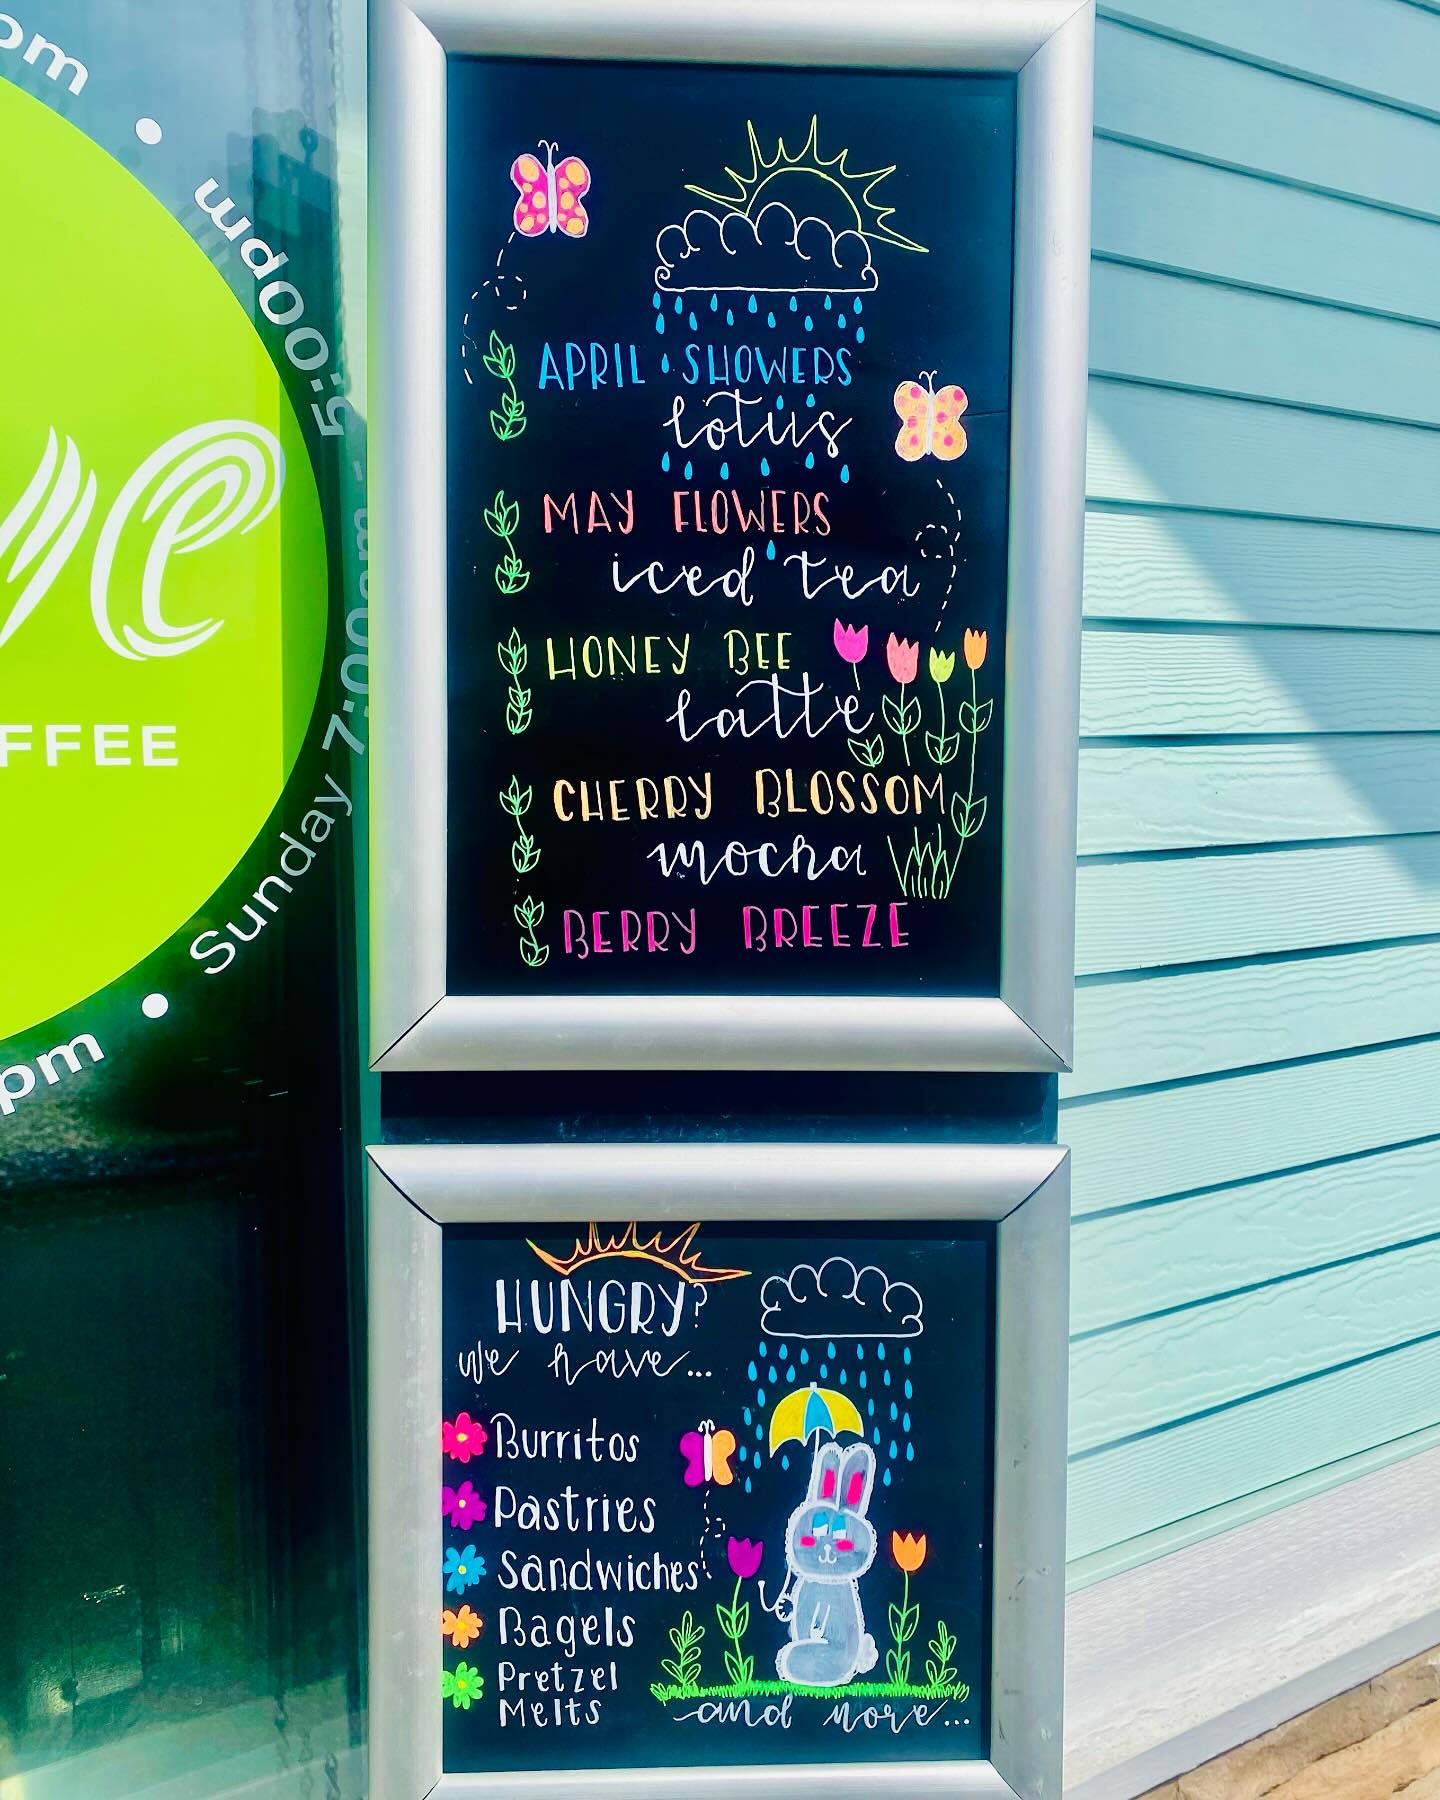 pm
Sunday 7:00am - 5:00pm
pm
FFEE
APRIL SHOWERS
lotus
MAY FLOWERS
iced tea
HONEY BEE
latte
CHERRY BLOSSOM
mocha
BERRY BREEZE
HUNGRY?
we have...
Burritos
Pastries
Sandwiches
Bagels
Pretzel
Melts
and more...